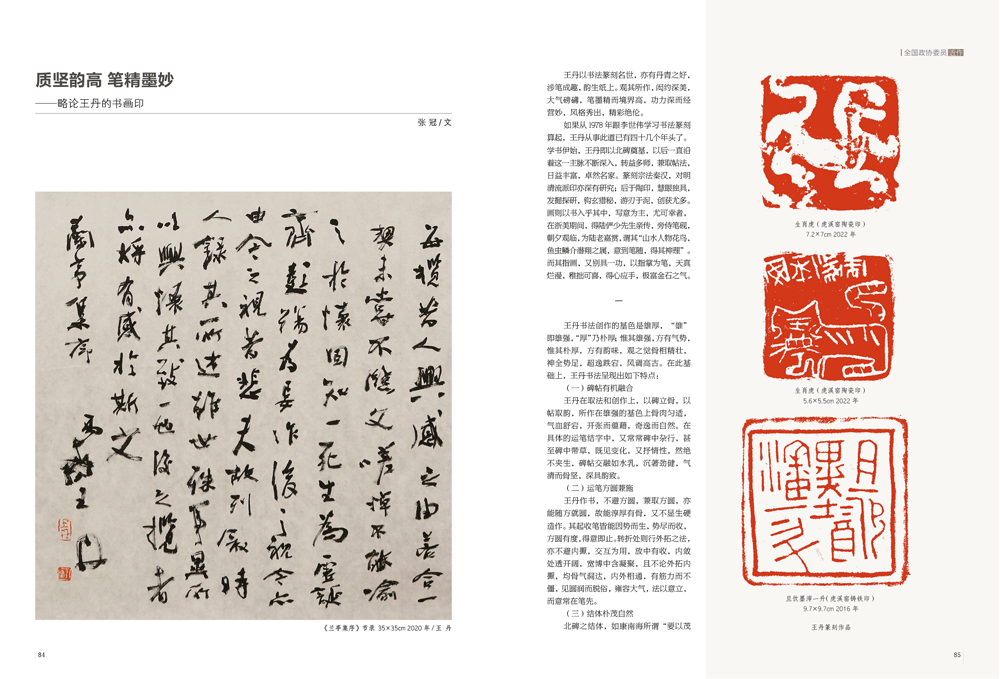 质坚韵高 笔精墨妙
——略论王丹的书画印
张 冠 / 文
每揽昔人兴感之由若合一
契未尝不临文嗟悼不能喻
之于怀固知一死生为虚诞
齐彭殇为妄作后之视今亦
由今之视昔悲夫故列叙时
人录其所述虽世殊事异所
以兴怀其致一也后之揽者
亦将有感于斯文
兰亭集序
王丹
《兰亭集序》节录 35×35cm 2020 年 / 王 丹
84
王丹以书法篆刻名世，亦有丹青之好，
涉笔成趣，韵生纸上。观其所作，闳约深美，
大气磅礴，笔墨精而境界高，功力深而经
营妙，风格秀出，精彩绝伦。
如果从 1978 年跟李世伟学习书法篆刻
算起，王丹从事此道已有四十几个年头了。
学书伊始，王丹即以北碑奠基，以后一直沿
着这一主脉不断深入，转益多师，兼取帖法，
日益丰富，卓然名家。篆刻宗法秦汉，对明
清流派印亦深有研究；后于陶印，慧眼独具，
发掘探研，钩玄猎秘，游刃于泥，创获尤多。
画则以书入乎其中，写意为主，尤可幸者，
在浙美期间，得陆俨少先生亲传，旁侍笔砚，
朝夕观临，为陆老嘉赏，谓其“山水人物花鸟，
鱼虫鳞介潜翔之属，意到笔随，得其神理”。
而其指画，又别具一功，以指掌为笔，天真
烂漫，稚拙可喜，得心应手，极富金石之气。
一
王丹书法创作的基色是雄厚，“雄”
即雄强，“厚”乃朴厚；惟其雄强，方有气势，
惟其朴厚，方有韵味，观之觉骨相精壮，
神全势足，超逸跌宕，风调高古。在此基
础上，王丹书法呈现出如下特点：
（一）碑帖有机融合
王丹在取法和创作上，以碑立骨，以
帖取韵，所作在雄强的基色上骨肉匀适，
气血舒宕，开张而蕴藉，奇逸而自然。在
具体的运笔结字中，又常常碑中杂行，甚
至碑中带草，既见变化，又抒情性，然绝
不夹生，碑帖交融如水乳，沉著劲健，气
清而骨坚，深具韵致。
（二）运笔方圆兼施
王丹作书，不避方圆，兼取方圆，亦
能随方就圆，故能淳厚有骨，又不显生硬
造作。其起收笔皆能因势而生，势尽而收，
方圆有度，得意即止。转折处则行外拓之法，
亦不避内擫，交互为用，放中有收，内敛
处透开阔，宽博中含凝聚，且不论外拓内
擫，均骨气洞达，内外相通，有筋力而不
僵，见圆润而脱俗，雍容大气，法以意立，
而意常在笔先。
（三）结体朴茂自然
北碑之结体，如康南海所谓“要以茂
全国政协委员近作
生肖虎（虎溪窑陶瓷印）
7.2×7cm 2022 年
生肖虎（虎溪窑陶瓷印）
5.6×5.5cm 2022 年
且饮墨渖一升
且饮墨渖一升（虎溪窑铸铁印）
9.7×9.7cm 2016 年
王丹篆刻作品
85